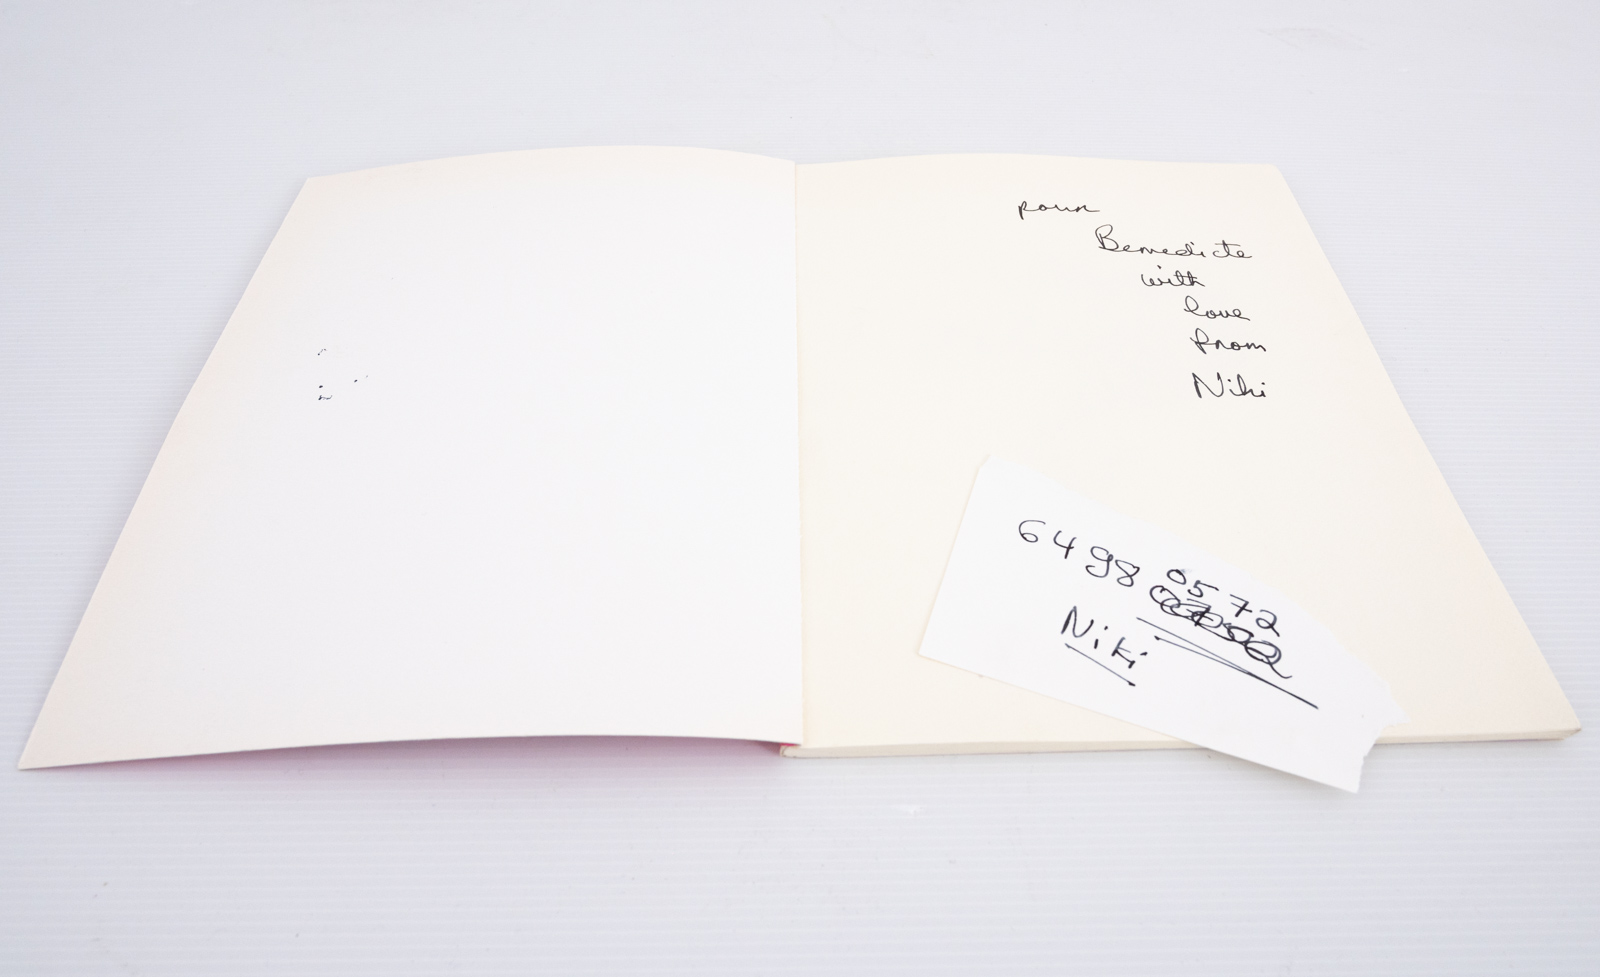 pour
Benedicte
with
love
from
Niki
6498 0572
Niki